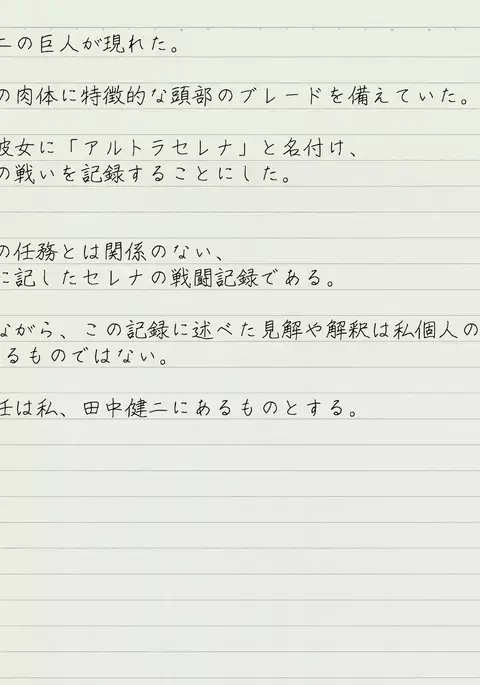 ニの巨人が現れた。
の肉体に特徴的な頭部のブレードを備えていた。
彼女に「アルトラセレナ」と名付け、
の戦いを記録することにした。
の任務とは関係のない、
に記したセレナの戦闘記録である。
ながら、この記録に述べた見解や解釈は私個人の
るものではない。
任は私、田中健二にあるものとする。